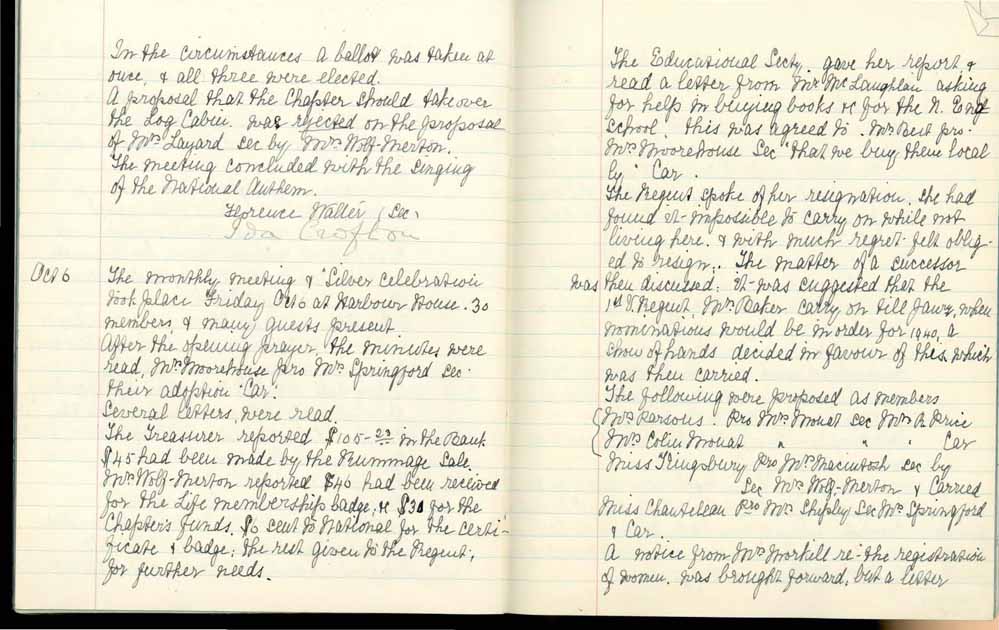 In the circumstances a ballot was taken at
once, & all three were elected.
A proposal that the Chapter should takeover
the Log Cabin. was rejected on the proposal
of Mrs Layard sec by Mrs Wolf-Merton.
The meeting concluded with the singing
of the National Anthem.
Florence Walter (Sec.
Ida Crofton
Oct 6
The monthly meeting & Silver celebration
took place Friday Oct 6 at Harbour House. 30
members, & many guests present
After the opening prayer, the minutes were
read, Mrs Moorehouse pro Mrs Springford sec.
their adoption "Car".
Several letters were read.
The Treasurer reported $105-23 in the Bank
$45 had been made by the Rummage Sale.
Mrs Wolf-Merton reported $40 had been received
for the Life membership badge, & $30 for the
Chapter's funds. $ sent to National for the certi-
ficate & badge; the rest given to the Regent,
for further needs.
The Educational Secty. gave her report, &
read a letter from Mr McLaughlan asking
for help in buying books &c for the N. End
School. this was agreed to. Mrs Best pro.
Mrs Moorehouse Sec "that we buy them local
ly" Car.
The Regent spoke of her resignation. She had
found it impossible to carry on while not
living here. & with much regret felt oblig-
ed to resign. The matter of a successor
was then discussed: it was suggested that the
1st V. Regent, Mrs Baker carry on till Jany, when
nominations would be in order for 1940, a
show of hands decided in favour of this which
was then carried.
The following were proposed as members
Mrs Parsons. Pro Mrs Mouat sec Mrs R. Price
Mrs Colin Mouat " " " Car
Miss Kingsbury Pro Mrs Macintosh sec by
Sec Mrs Wolf-Merton & Carried
Miss Chanteleau Pro Mrs Shipley Sec Mrs Springford
& Car.
A notice from Mrs Morkill re: the registration
of women. was brought forward, but a letter